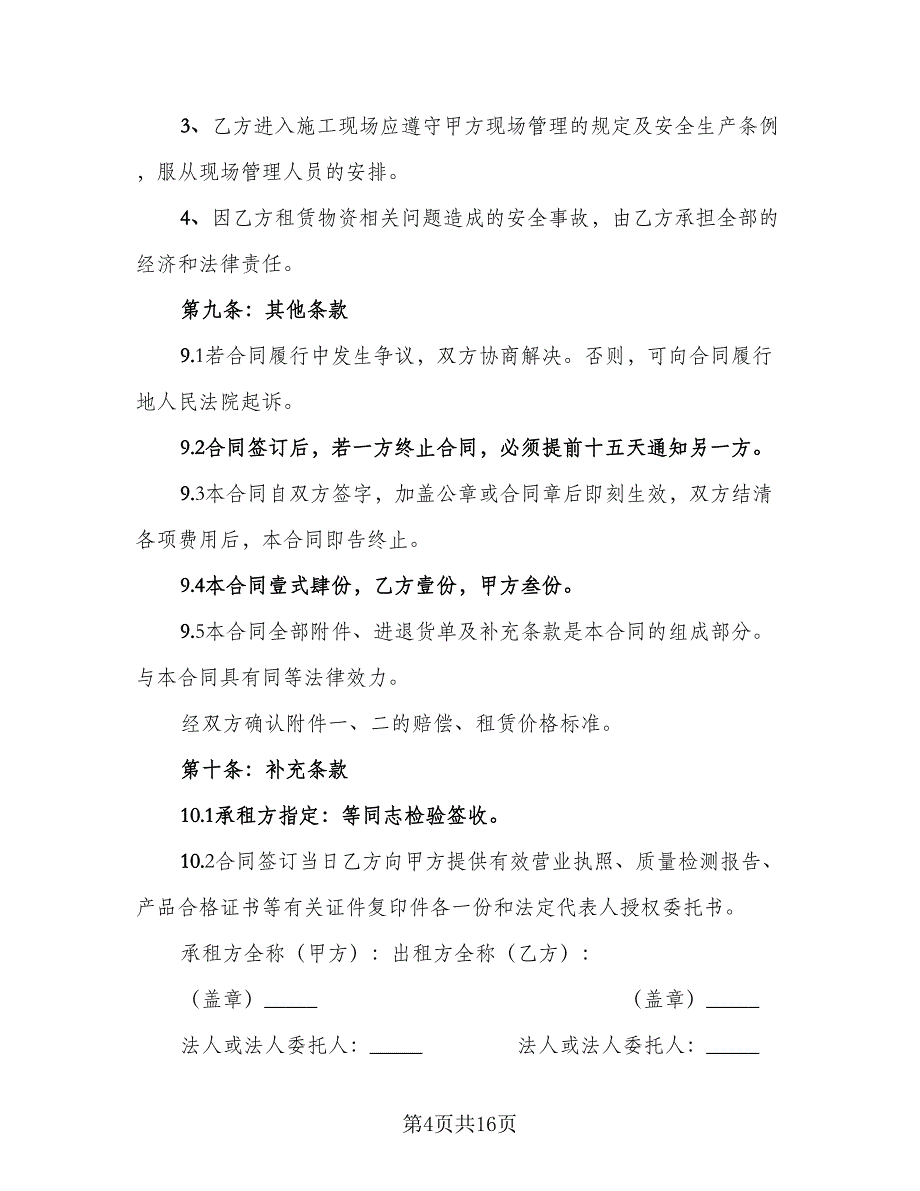 3、乙方进入施工现场应遵守甲方现场管理的规定及安全生产条例
，服从现场管理人员的安排。
4、因乙方租赁物资相关问题造成的安全事故，由乙方承担全部的
经济和法律责任。
第九条：其他条款
9.1若合同履行中发生争议，双方协商解决。否则，可向合同履行
地人民法院起诉。
9.2合同签订后，若一方终止合同，必须提前十五天通知另一方。
9.3本合同自双方签字，加盖公章或合同章后即刻生效，双方结清
各项费用后，本合同即告终止。
9.4本合同壹式肆份，乙方壹份，甲方叁份。
9.5本合同全部附件、进退货单及补充条款是本合同的组成部分。
与本合同具有同等法律效力。
经双方确认附件一、二的赔偿、租赁价格标准。
第十条：补充条款
10.1承租方指定：等同志检验签收。
10.2合同签订当日乙方向甲方提供有效营业执照、质量检测报告、
产品合格证书等有关证件复印件各一份和法定代表人授权委托书。
承租方全称（甲方）：出租方全称（乙方）：
（盖章）_____ （盖章）_____
法人或法人委托人：_____ 法人或法人委托人：_____
第4页共16页